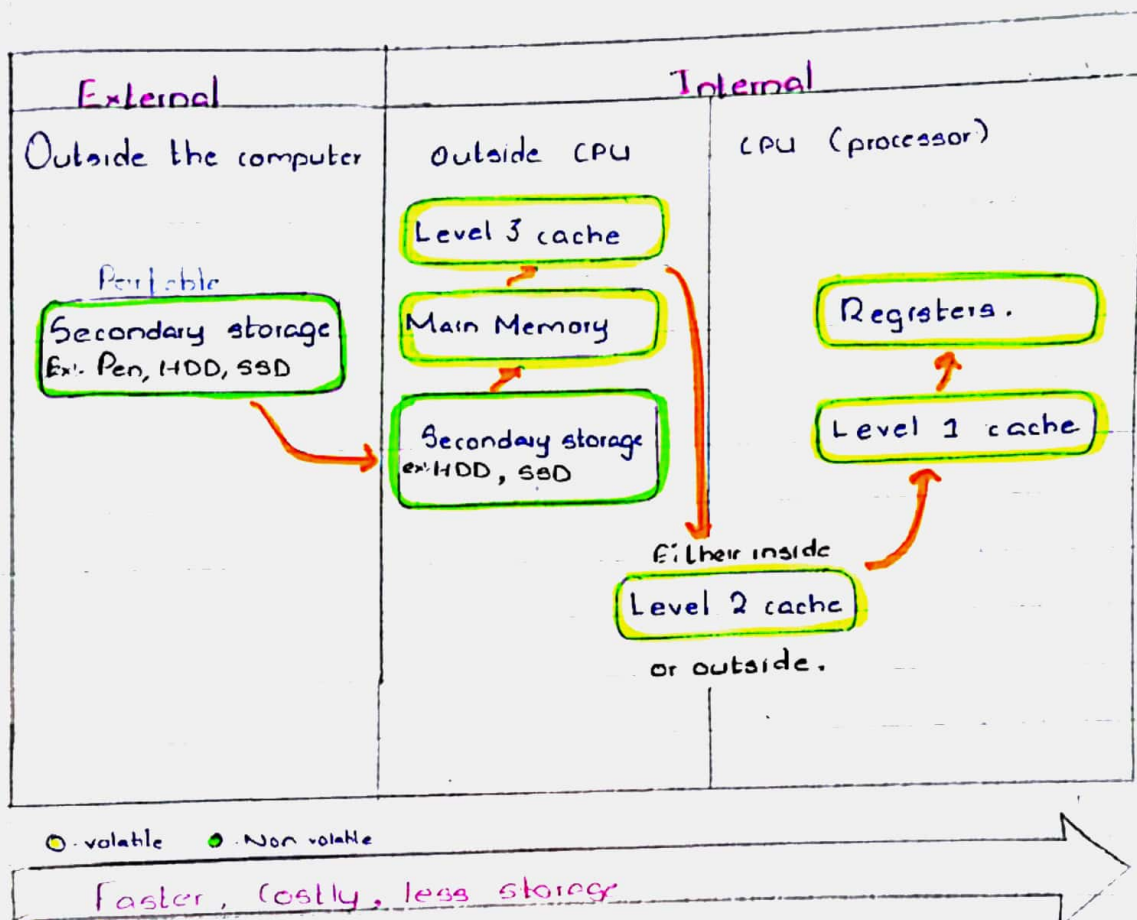 External
Internal
Outside the computer
Outside CPU
CPU (processor)
Portable
Secondary storage
Ex:- Pen, HDD, SSD
Level 3 cache
Main Memory
Secondary storage
ex:- HDD, SSD
Registers.
Level 1 cache
Either inside
Level 2 cache
or outside.
volatile
Non volatile
Faster, Costly, less storage